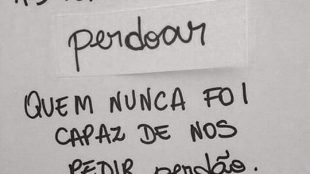 perdoar
QUEM NUNCA FOI
CAPAZ DE NOS
PEDIR perdão.